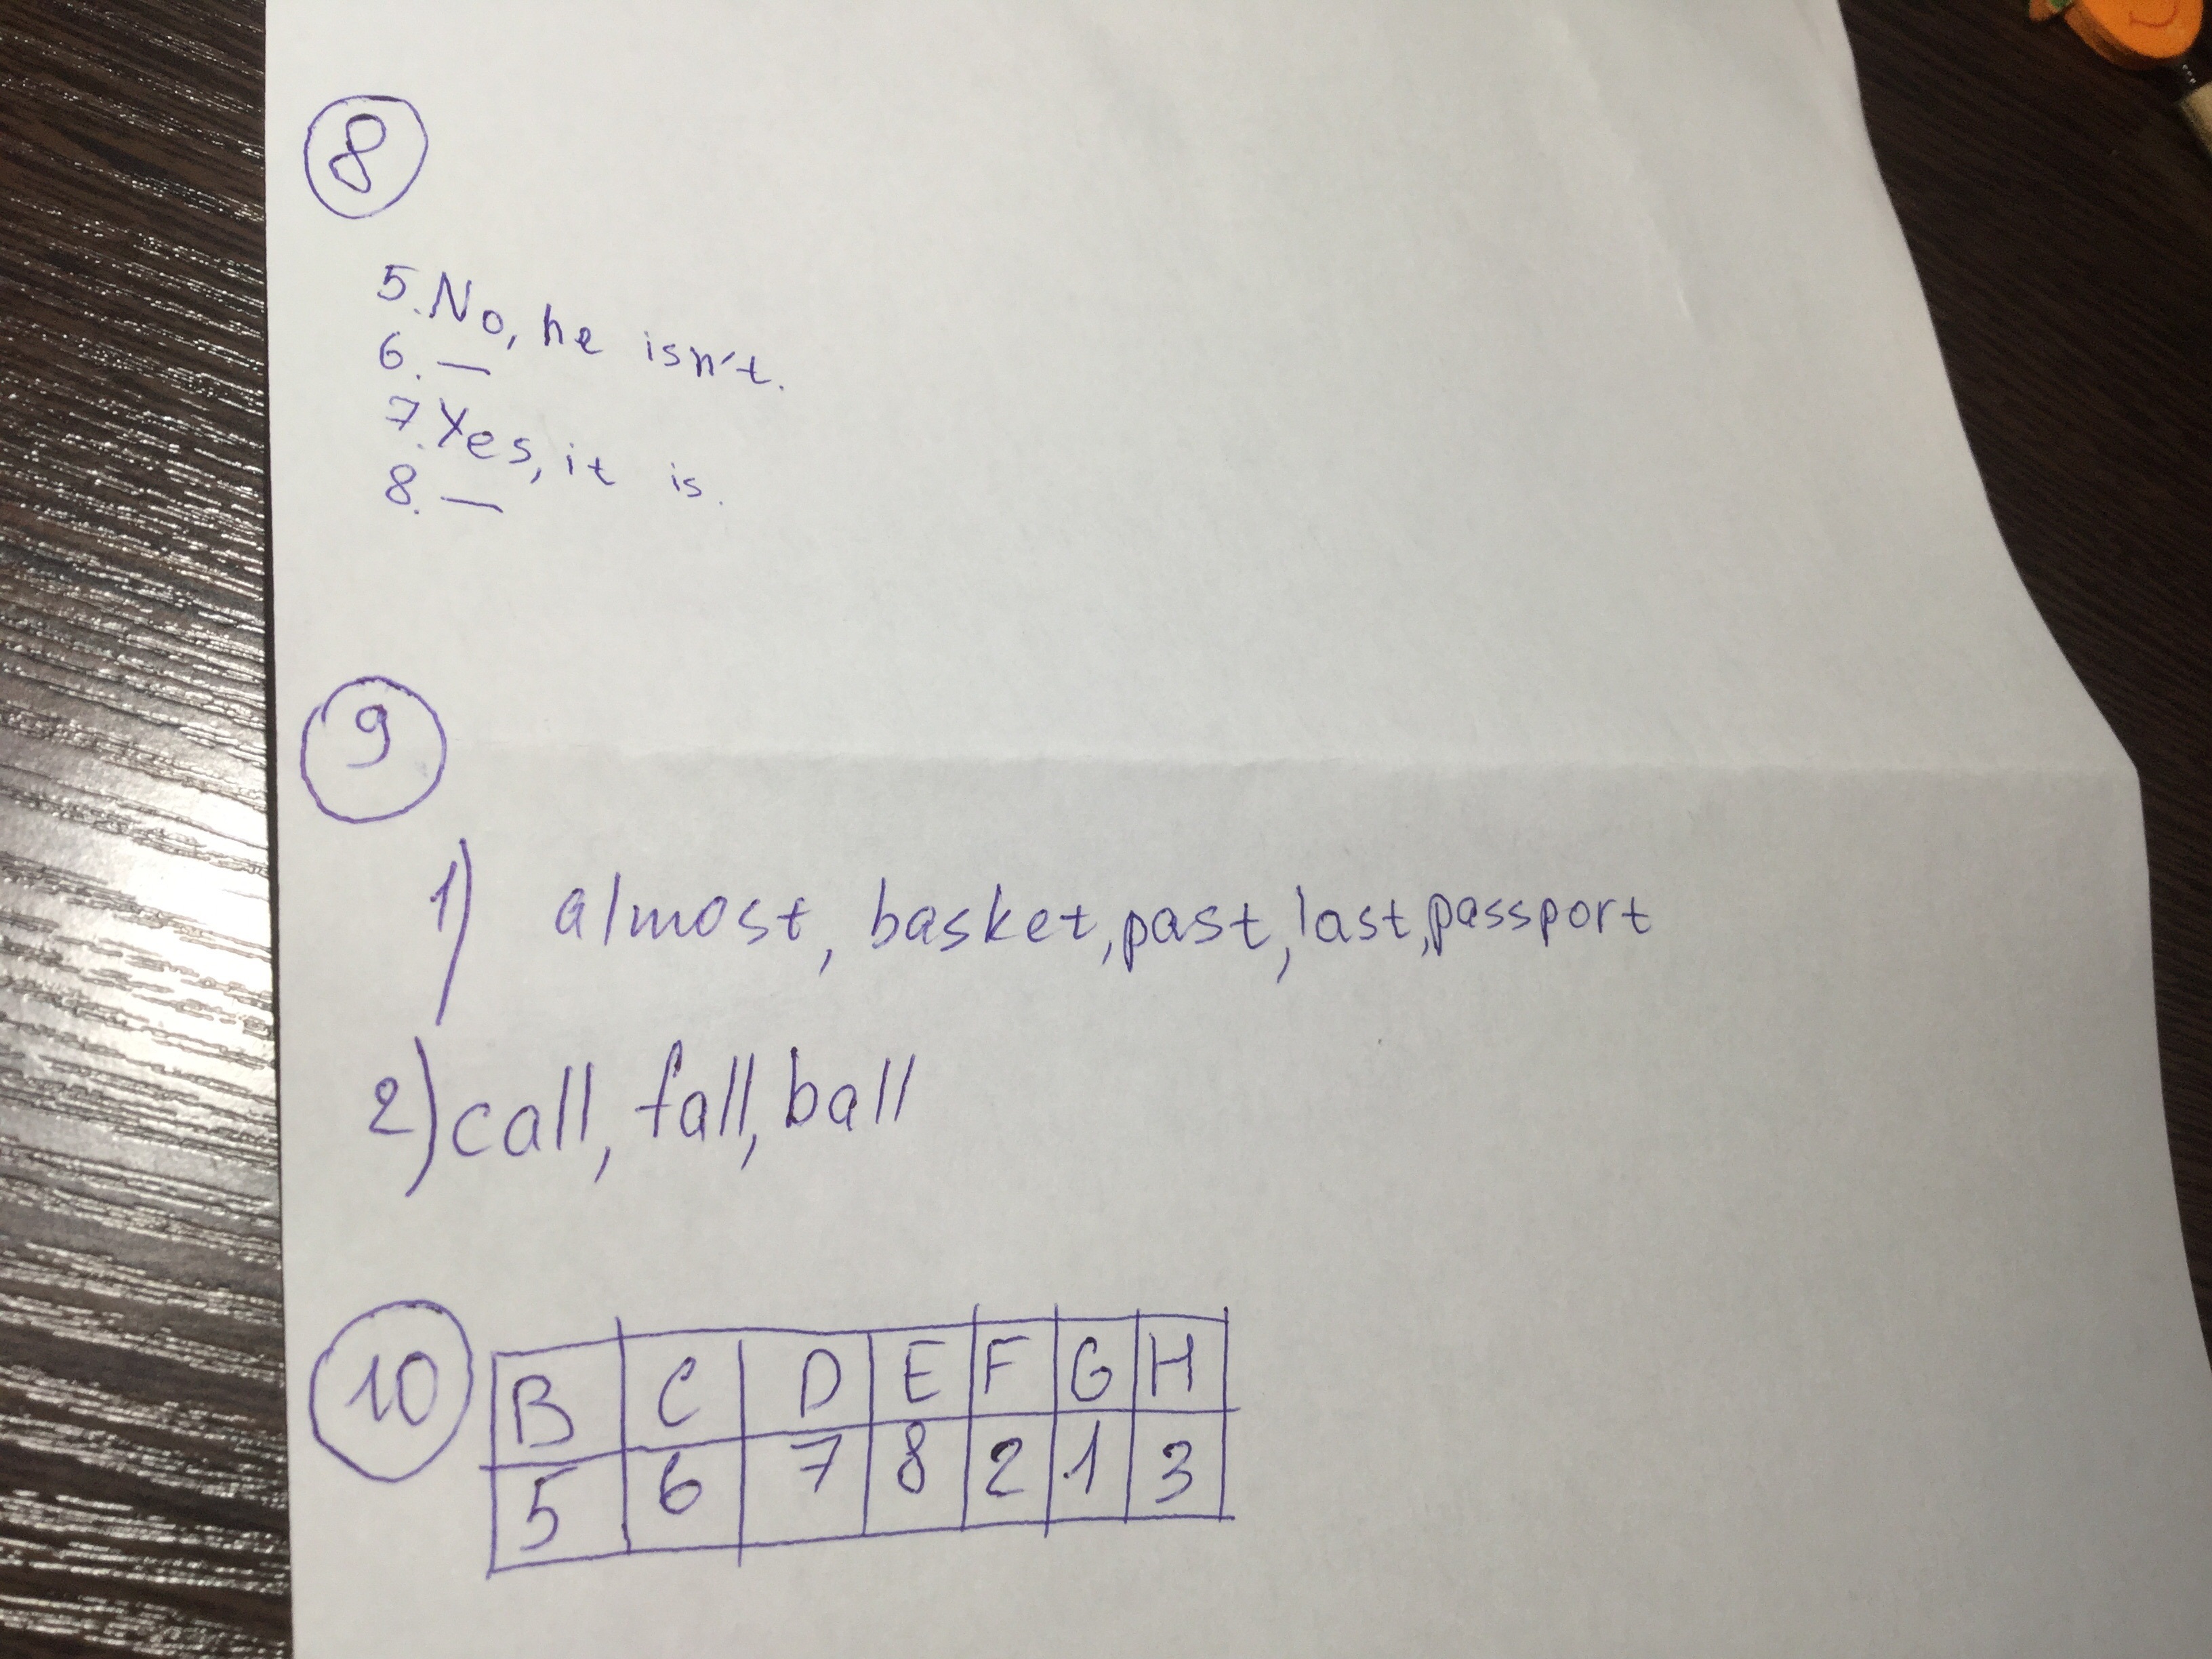 8
5. No, he isn't.
6. —
7. Yes, it is.
8. —
9
1) almost, basket, past, last, passport
2) call, fall, ball
10
B C D E F G H
5 6 7 8 2 1 3